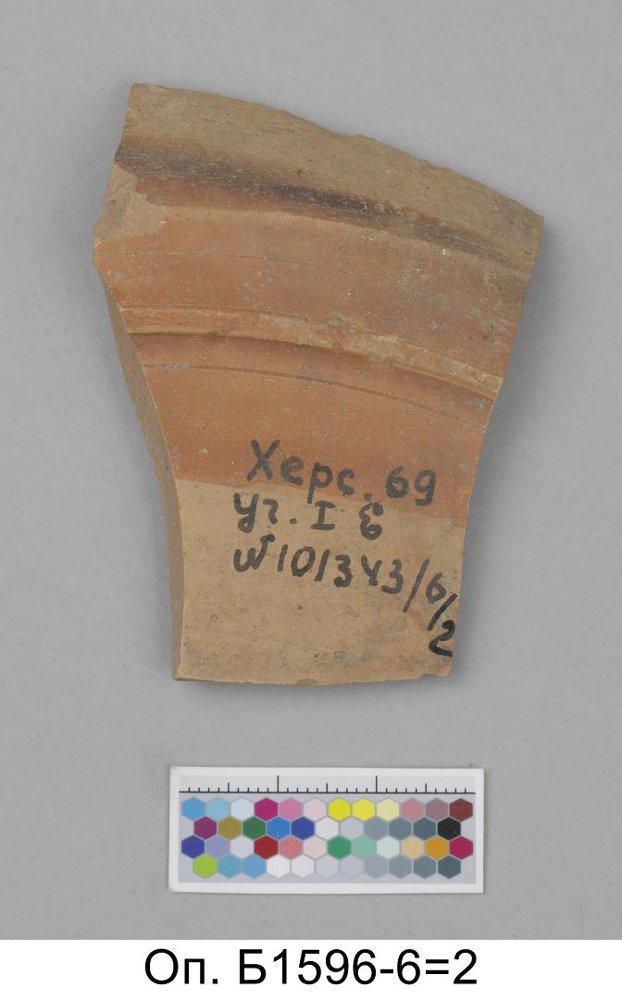 Херс. 69
уч. I Б
№101343/6/2
Оп. Б1596-6=2